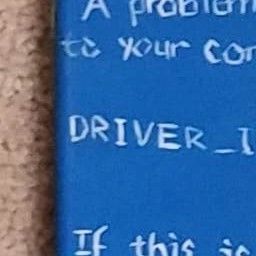 A problem
to your con
DRIVER_I
If this is